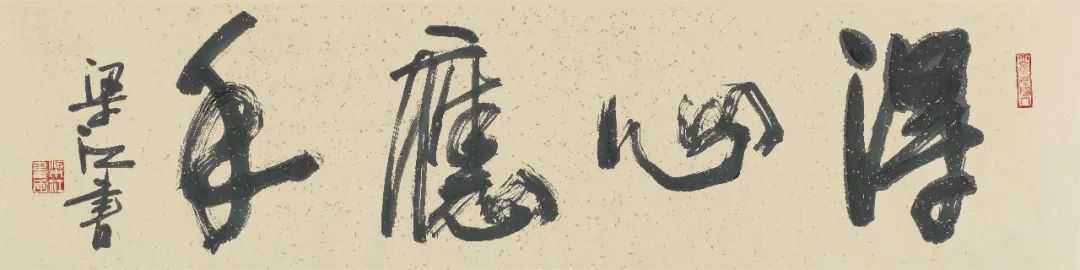 得心應手
梁江書